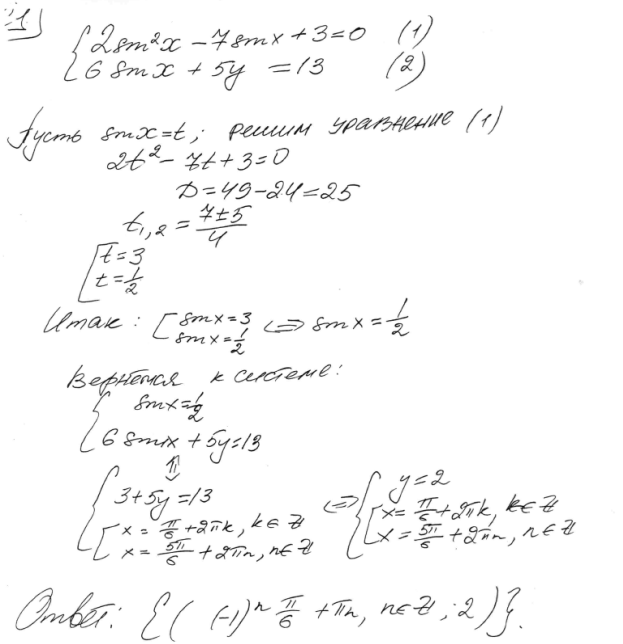 1)
{ 2sin²x − 7sinx + 3 = 0 (1)
{ 6 sinx + 5y = 13 (2)
Пусть sinx = t; решим уравнение (1)
2t² − 7t + 3 = 0
D = 49 − 24 = 25
t₁,₂ = (7±5)/4
[ t = 3
[ t = 1/2
Итак: [ sinx = 3 ⇔ sinx = 1/2
[ sinx = 1/2
Вернемся к системе:
{ sinx = 1/2
{ 6 sinx + 5y = 13
⇕
{ 3 + 5y = 13 ⇔ { y = 2
[ x = π/6 + 2πk, k∈Z [ x = π/6 + 2πk, k∈Z
[ x = 5π/6 + 2πn, n∈Z [ x = 5π/6 + 2πn, n∈Z
Ответ: {( (-1)ⁿ π/6 + πn, n∈Z ; 2 )}.